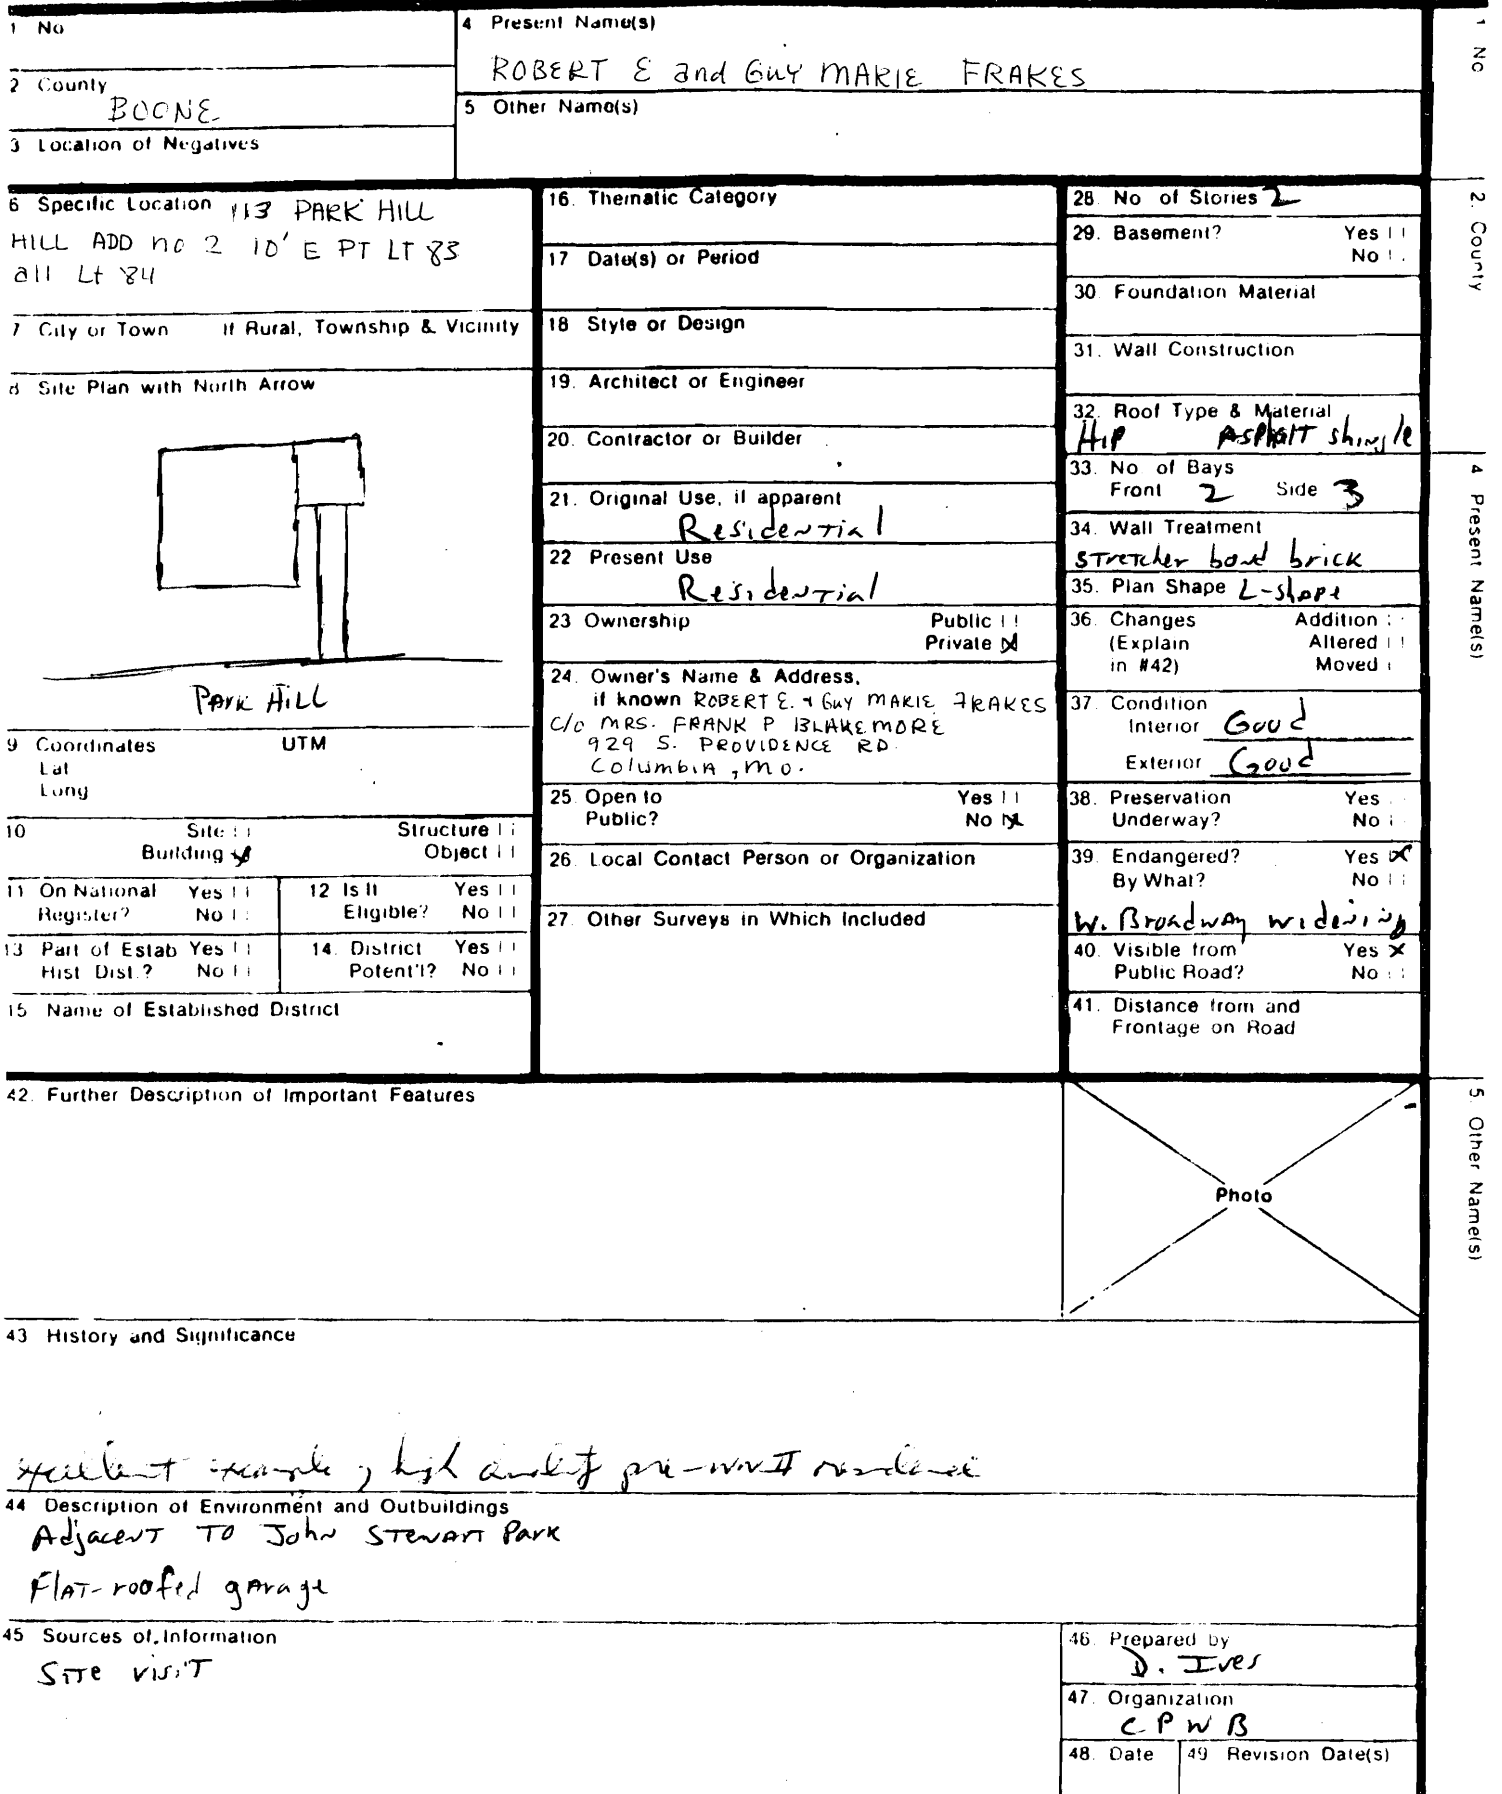 1 No
4 Present Name(s)
ROBERT E and GUY MARIE FRAKES
2 County
BOONE
5 Other Name(s)
3 Location of Negatives
6 Specific Location 113 PARK HILL
HILL ADD no 2 10' E PT LT 83
all Lt 84
7 City or Town If Rural, Township & Vicinity
8 Site Plan with North Arrow
PARK HILL
9 Coordinates UTM
Lat
Long
10 Site Structure
Building Object
11 On National Register? Yes No
12 Is It Eligible? Yes No
13 Part of Estab Hist Dist.? Yes No
14. District Potent'l? Yes No
15 Name of Established District
16. Thematic Category
17 Date(s) or Period
18 Style or Design
19. Architect or Engineer
20. Contractor or Builder
21. Original Use, if apparent
Residential
22 Present Use
Residential
23 Ownership Public
Private X
24. Owner's Name & Address,
if known ROBERT E. & GUY MARIE FRAKES
C/O MRS. FRANK P BLAKEMORE
929 S. PROVIDENCE RD.
COLUMBIA, MO.
25. Open to Yes
Public? No X
26. Local Contact Person or Organization
27. Other Surveys in Which Included
28. No of Stories 2
29. Basement? Yes
No
30 Foundation Material
31. Wall Construction
32. Roof Type & Material
Hip Asphalt shingle
33. No of Bays
Front 2 Side 3
34. Wall Treatment
stretcher bond brick
35. Plan Shape L-shape
36. Changes Addition
(Explain Altered
in #42) Moved
37. Condition
Interior Good
Exterior Good
38. Preservation Yes
Underway? No
39. Endangered? Yes X
By What? No
W. Broadway widening
40. Visible from Yes X
Public Road? No
41. Distance from and
Frontage on Road
42. Further Description of Important Features
Photo
43 History and Significance
excellent example, high quality pre-WWII residence
44 Description of Environment and Outbuildings
Adjacent TO John Stewart Park
Flat-roofed garage
45 Sources of Information
Site visit
46. Prepared by
D. Ives
47. Organization
CPWB
48. Date
49 Revision Date(s)
1 No
2. County
4 Present Name(s)
5. Other Name(s)